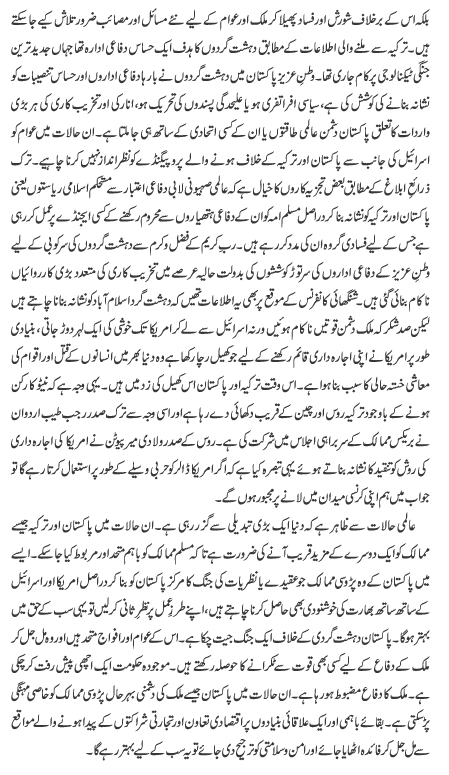 بلکہ اس کے برخلاف شورش اور فساد پھیلا کر ملک اور عوام کے لیے نئے مسائل اور مصائب ضرور تلاش کیے جا سکتے
ہیں۔ ترکیہ سے ملنے والی اطلاعات کے مطابق دہشت گردوں کا ہدف ایک حساس دفاعی ادارہ تھا جہاں جدید ترین
جنگی ٹیکنالوجی پر کام جاری تھا۔ وطن عزیز پاکستان میں دہشت گردوں نے بارہا دفاعی اداروں اور حساس تنصیبات کو
نشانہ بنانے کی کوشش کی ہے، سیاسی افراتفری ہو یا علیحدگی پسندوں کی تحریک ہو، انارکی اور تخریب کاری کی ہر بڑی
واردات کا تعلق پاکستان دشمن عالمی طاقتوں یا ان کے کسی اتحادی کے ساتھ ہی جا ملتا ہے۔ ان حالات میں عوام کو
اسرائیل کی جانب سے پاکستان اور ترکیہ کے خلاف ہونے والے پروپیگنڈے کو نظر انداز نہیں کرنا چاہیے۔ ترک
ذرائع ابلاغ کے مطابق بعض تجزیہ کاروں کا خیال ہے کہ عالمی صہیونی لابی دفاعی اعتبار سے مستحکم اسلامی ریاستوں یعنی
پاکستان اور ترکیہ کو نشانہ بنا کر دراصل مسلم امہ کو ان کے دفاعی ہتھیاروں سے محروم رکھنے کے کسی ایجنڈے پر عمل کر رہی
ہے جس کے لیے فسادی گروہ ان کی مدد کر رہے ہیں۔ رب کریم کے فضل و کرم سے دہشت گردوں کی سرکوبی کے لیے
وطن عزیز کے دفاعی اداروں کی سر توڑ کوششوں کی بدولت حالیہ عرصے میں تخریب کاری کی متعدد بڑی کارروائیاں
ناکام بنائی گئی ہیں۔ شنگھائی کانفرنس کے موقع پر بھی یہ اطلاعات تھیں کہ دہشت گرد اسلام آباد کو نشانہ بنانا چاہتے ہیں
لیکن صد شکر کہ ملک دشمن قوتیں ناکام ہوئیں ورنہ اسرائیل سے لے کر امریکا تک خوشی کی ایک لہر دوڑ جاتی، بنیادی
طور پر امریکا نے اپنی اجارہ داری قائم رکھنے کے لیے جو کھیل رچا رکھا ہے وہ دنیا بھر میں انسانوں کے قتل اور اقوام کی
معاشی خستہ حالی کا سبب بنا ہوا ہے۔ اس وقت ترکیہ اور پاکستان اس کھیل کی زد میں ہیں۔ یہی وجہ ہے کہ نیٹو کا رکن
ہونے کے باوجود ترکیہ روس اور چین کے قریب دکھائی دے رہا ہے اور اسی وجہ سے ترک صدر رجب طیب اردوان
نے بریکس ممالک کے سربراہی اجلاس میں شرکت کی ہے۔ روس کے صدر ولادی میر پیوٹن نے امریکا کی اجارہ داری
کی روش کو تنقید کا نشانہ بناتے ہوئے یہی تبصرہ کیا ہے کہ اگر امریکا ڈالر کو حربی وسیلے کے طور پر استعمال کرتا رہے گا تو
جواب میں ہم اپنی کرنسی میدان میں لانے پر مجبور ہوں گے۔
عالمی حالات سے ظاہر ہے کہ دنیا ایک بڑی تبدیلی سے گزر رہی ہے۔ ان حالات میں پاکستان اور ترکیہ جیسے
ممالک کو ایک دوسرے کے مزید قریب آنے کی ضرورت ہے تاکہ مسلم ممالک کو باہم متحد اور مربوط کیا جا سکے۔ ایسے
میں پاکستان کے وہ پڑوسی ممالک جو عقیدے یا نظریات کی جنگ کا مرکز پاکستان کو بنا کر دراصل امریکا اور اسرائیل
کے ساتھ ساتھ بھارت کی خوشنودی بھی حاصل کرنا چاہتے ہیں، اپنے طرز عمل پر نظر ثانی کر لیں تو یہی سب کے حق میں
بہتر ہو گا۔ پاکستان دہشت گردی کے خلاف ایک جنگ جیت چکا ہے۔ اس کے عوام اور افواج متحد ہیں اور وہ مل جل کر
ملک کے دفاع کے لیے کسی بھی قوت سے ٹکرانے کا حوصلہ رکھتے ہیں۔ موجودہ حکومت ایک اچھی پیش رفت کر چکی
ہے۔ ملک کا دفاع مضبوط ہو رہا ہے۔ ان حالات میں پاکستان جیسے ملک کی دشمنی بہرحال پڑوسی ممالک کو خاصی مہنگی
پڑ سکتی ہے۔ بقائے باہمی اور ایک علاقائی بنیادوں پر اقتصادی تعاون اور تجارتی شراکتوں کے پیدا ہونے والے مواقع
سے مل جل کر فائدہ اٹھایا جائے اور امن و سلامتی کو ترجیح دی جائے تو یہ سب کے لیے بہتر رہے گا۔